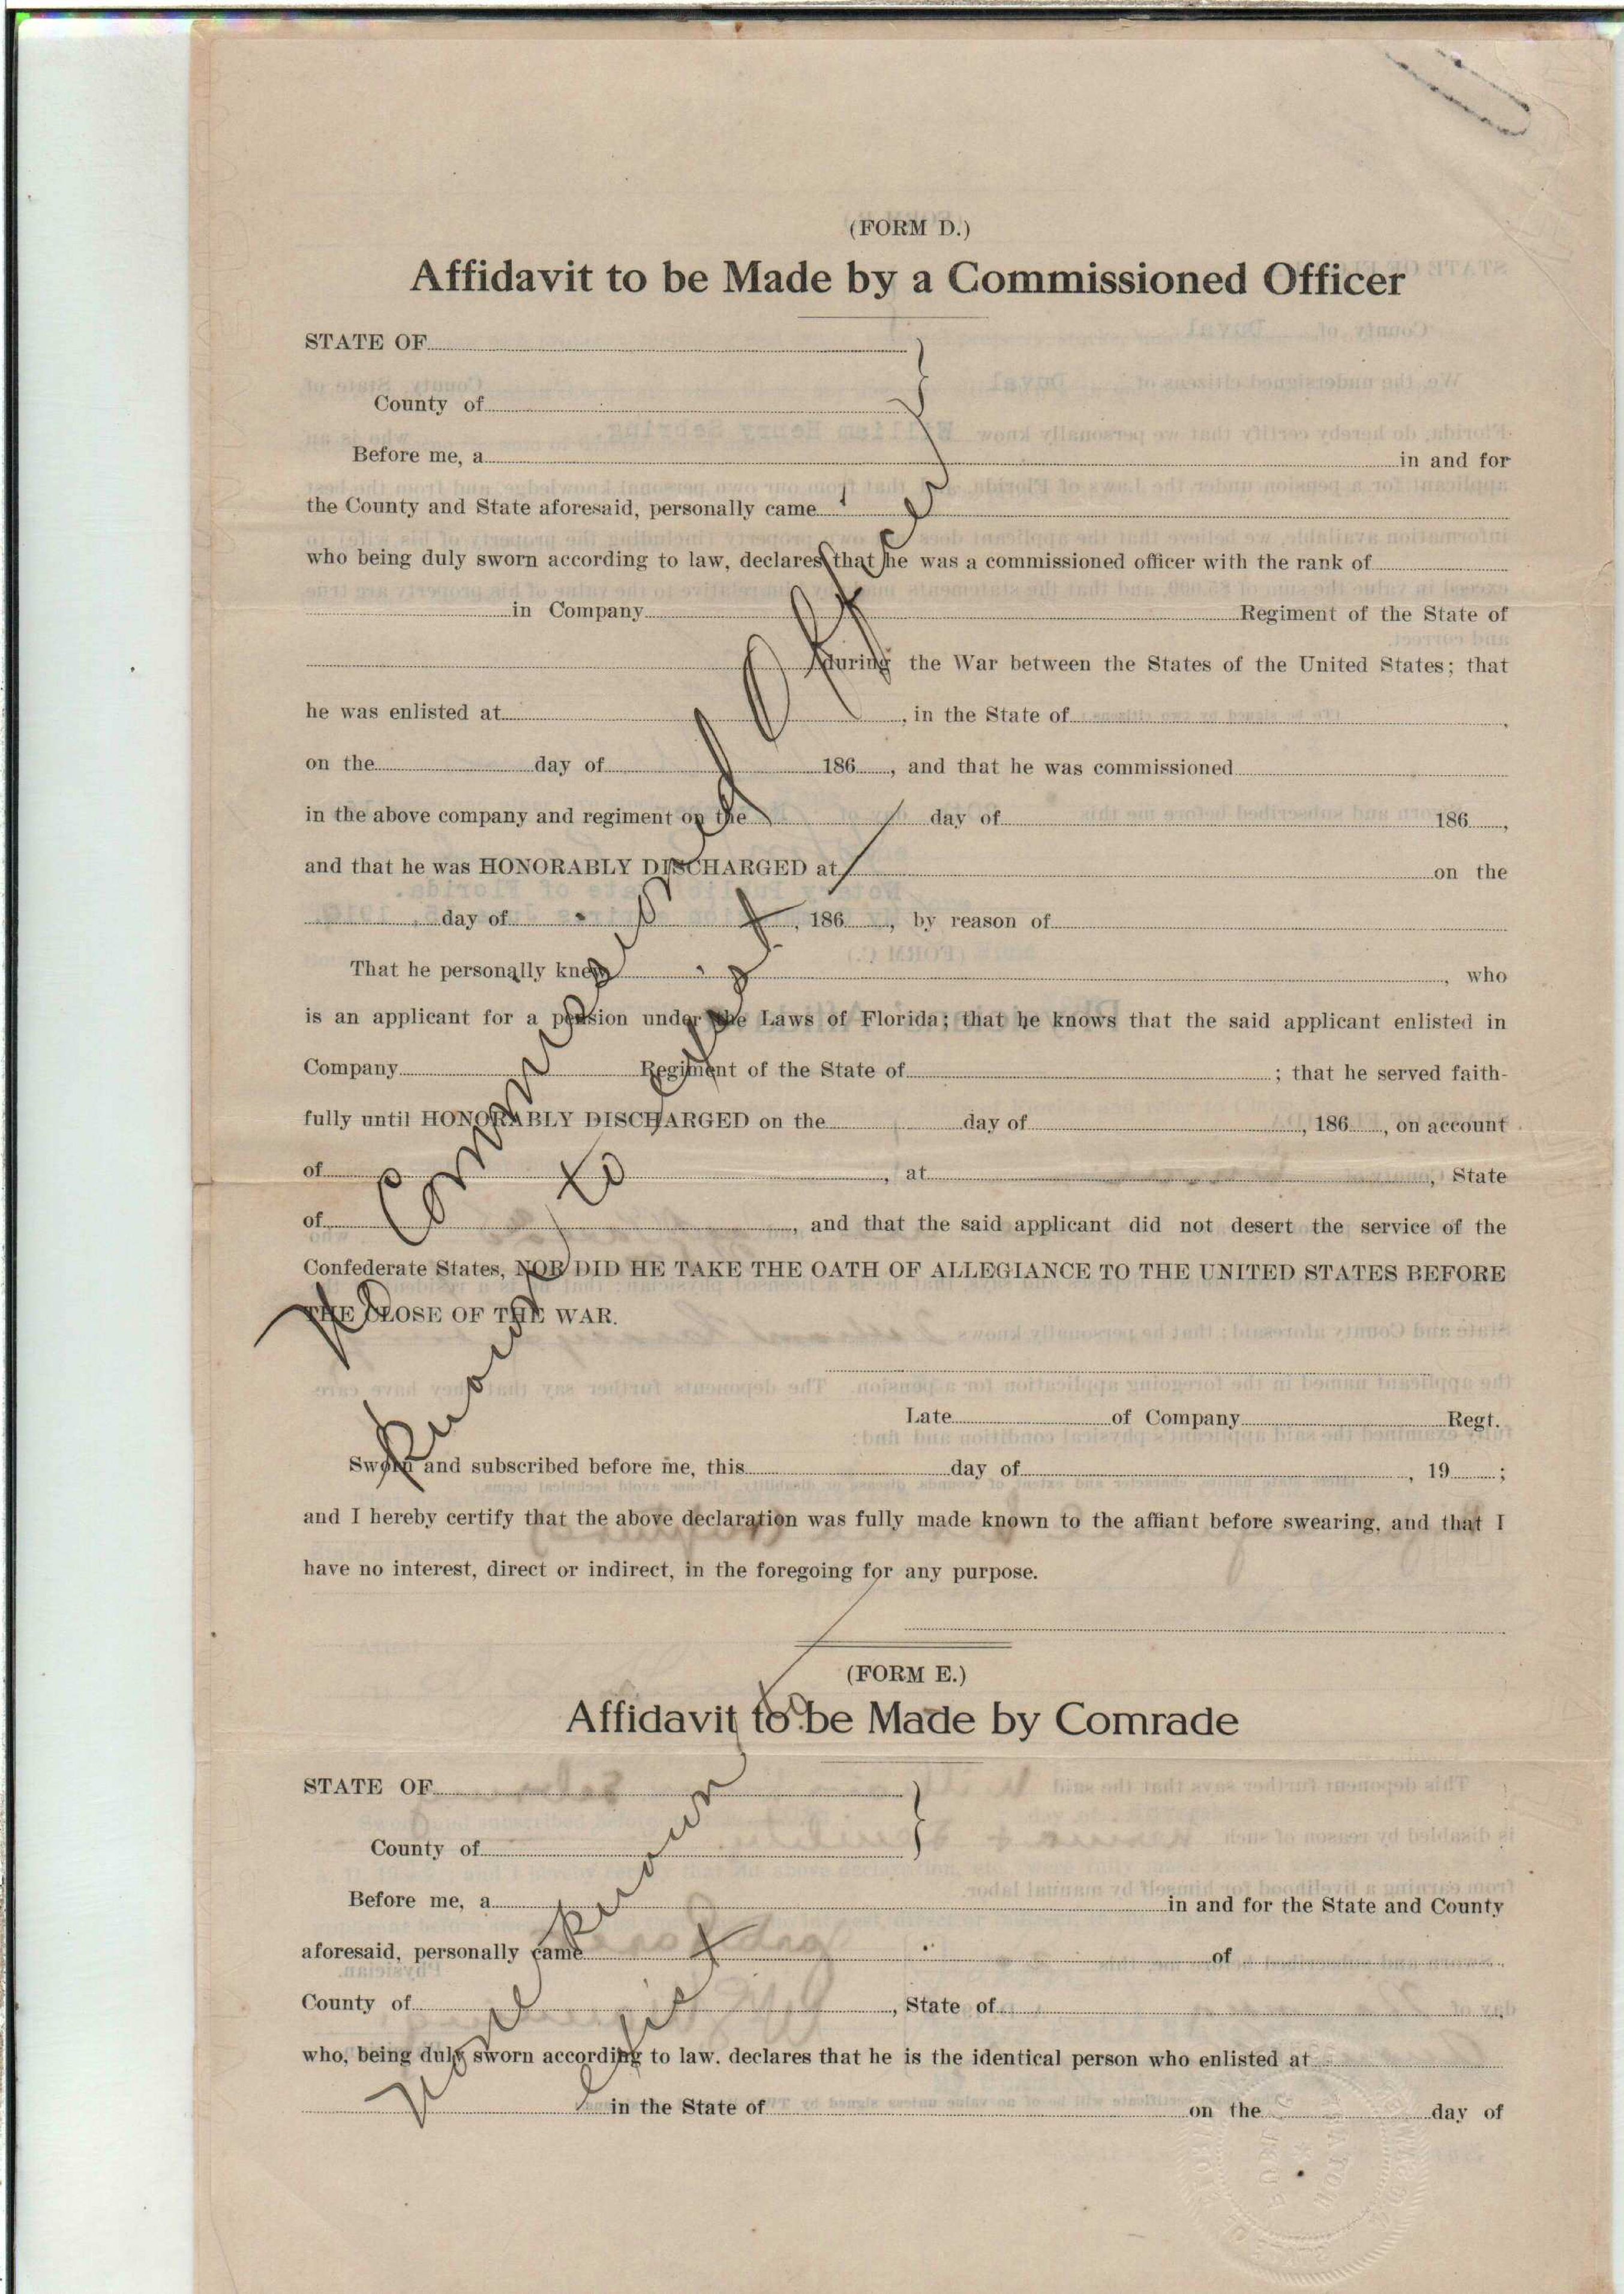 (FORM D.)
Affidavit to be Made by a Commissioned Officer
STATE OF
County of
Before me, a in and for
the County and State aforesaid, personally came
who being duly sworn according to law, declares that he was a commissioned officer with the rank of
in Company Regiment of the State of
during the War between the States of the United States; that
he was enlisted at , in the State of .
on the day of 186 , and that he was commissioned
in the above company and regiment on the day of 186 ,
and that he was HONORABLY DISCHARGED at on the
day of , 186 , by reason of
That he personally knew , who
is an applicant for a pension under the Laws of Florida; that he knows that the said applicant enlisted in
Company Regiment of the State of ; that he served faith-
fully until HONORABLY DISCHARGED on the day of , 186 , on account
of , at , State
of , and that the said applicant did not desert the service of the
Confederate States, NOR DID HE TAKE THE OATH OF ALLEGIANCE TO THE UNITED STATES BEFORE
THE CLOSE OF THE WAR.
Late of Company Regt.
Sworn and subscribed before me, this day of , 19 ;
and I hereby certify that the above declaration was fully made known to the affiant before swearing, and that I
have no interest, direct or indirect, in the foregoing for any purpose.
(FORM E.)
Affidavit to be Made by Comrade
STATE OF
County of
Before me, a in and for the State and County
aforesaid, personally came of
County of , State of ,
who, being duly sworn according to law, declares that he is the identical person who enlisted at
in the State of on the day of
No Commissioned officer
known to